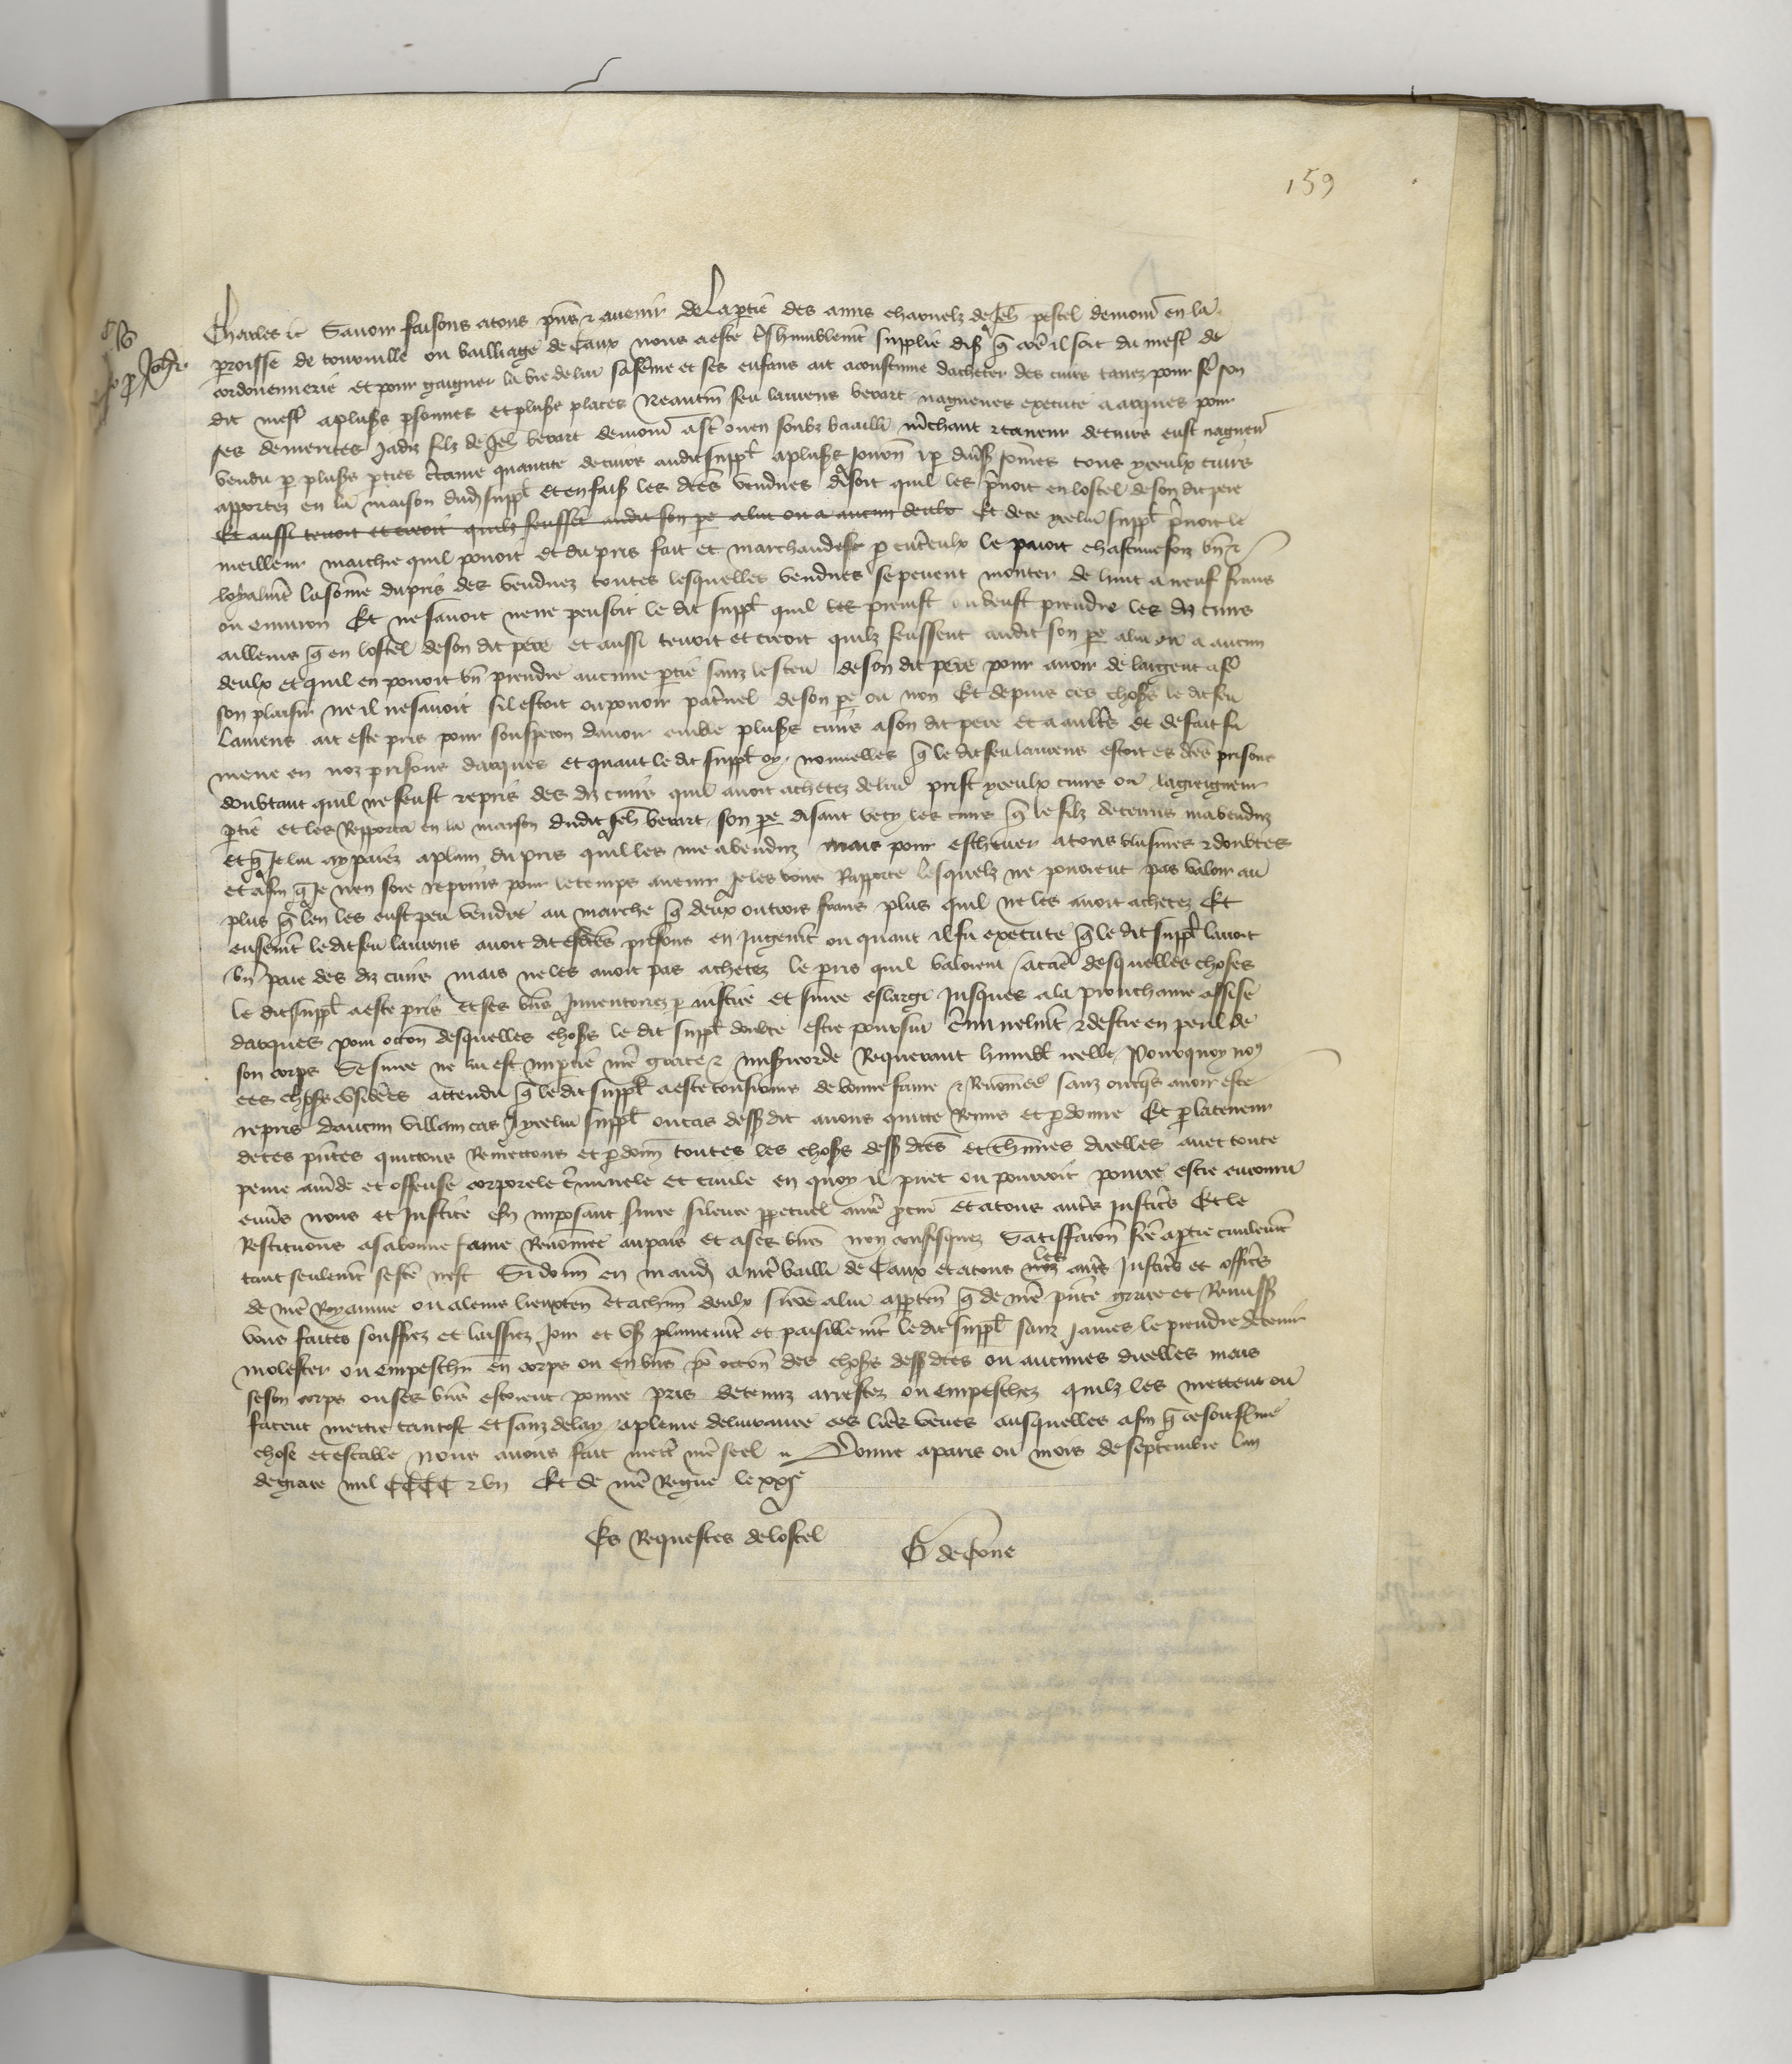 159
Charles etc Savoir faisons a tous pñs et avenir de la partie des amis charnelz de Jeh pestel demour en la
parroisse de touville ou bailliage de Caux nous a este tshumblemt supplie dis q cõe il soit du mest de
cordouennerie et pour gaigner la vie de lui sa fẽme et ses enfans ait acoustume dacheter des cuirs tanez pour fẽ son
dit mest a plus psonnes et plus places Neantm feu laurens berart nagueres execute a arques pour
ses demerites Jadiz filz de Jeh berart demour a st ouen soubz baailli mchant et taneur de cuirs eust nagueres
vendu p plus pties ctaine quantite de cuirs audit supplt a plus Journ et p divs sõmes tous yceulx cuirs
apportez en la maison dud supplt et en fais les dtes vendues disoit quil les pnoit en lostel de son dit pere
Et aussi tenoit et creoit quilz feussent audit son pe a lui ou a aucun deulx Et de ce ycelui supplt pnoit le
meilleur marchie quil povoit et du pris fait et marchande p entreulx le paioit chascune foiz bn et
loyalmt la sõme du pris des vendues toutes lesquelles vendues se pevent monter de huit a neuf frans
ou environ Et ne savoit ne ne pensoit le dit supplt quil les preinst ou deust prendre les diz cuirs
ailleurs q en lostel de son dit pere et aussi tenoit et creoit quilz feussent audit son pe a lui ou a aucun
deulx et quil en povoit bn prendre aucune ptie sanz le sceu de son dit pere pour avoir de largent a fẽ
son plaisir ne il ne savoit sil estoit ou povoir paternel de son pe ou non Et depuis ces choses le dit feu
Laurens ait este pris pour souspecon davoir emble plus cuirs a son dit pere et a aultres et de fait fu
mene en noz prisons darques et quant le dit supplt oy nouvelles q le dit feu laurens estoit es dtes prisons
doubtant quil ne feust repris des diz cuirs quil avoit achetez de lui prist yceulx cuirs ou la greigneur
ptie et les Rapporta en la maison dudit Jeh berart son pe disant vecy les cuirs q le filz de ceans ma venduz
et q Je lui ay paiez a plain du pris quil les me a venduz mais pour eschever a tous blasmes et doubtes
et afin q Je nen soie repris pour le temps avenir Je les vous Rapporte lesquelz ne povoient pas valoir au
plus q len les eust peu vendre au marche q deux ou trois frans plus quil ne les avoit achetez Et
ensemt le dit feu laurens avoit dit es dtes prisons en Jugemt ou quant il fu execute q le dit supplt lavoit
bn paie des diz cuirs mais ne les avoit pas achetez le pris quil valoient a cause desquelles choses
le dit supplt a este pris et ses bns Inventoriez p Justice et sur ce eslargi Jusques a la prouchaine assise
darques pour occon desquelles choses le dit supplt doubte estre poursui criminelmt et destre en peril de
son corps Se sur ce ne lui est impartie nre grace et misericorde Requerant humblt icelle Pourquoy nous
ces choses considerees attendu q le dit supplt a este tousjours de bonne fame et Renõmee sanz oncqs avoir este
repris daucun villain cas A ycelui supplt ou cas dessus dit avons quitte Remis et pdonne Et p la teneur
de ces pntes quittons Remettons et pdonn toutes les choses dess dtes et chunes dicelles avec toute
peine amde et offense corporele criminele et civile en quoy il puet ou pourroit pource estre encouru
envs nous et Justice En imposant sur ce silence ppetuel a nre pcur et a tous autrs Justics Et le
Restituons a sa bonne fame Renõmee au pais et a ses bns non confisquez Satisfacon fcte a ptie civilemt
tant seulemt se fcte nest Si donn en mand a nre bailli de Caux et a tous noz les autrs Justics et officrs
de nre Royaume ou a leurs lieuxten et a chun deulx si cõe a lui apparten q de nre pnte grace et Remiss
vous faites souffrez et laissiez Joir et us plainemt et paisiblemt le dit supplt sanz Jamais le prendre detenir
molester ou empeschier en corps ou en bns p occon des choses dess dtes ou aucunes dicelles mais
se son corps ou ses bns estoient pource pris detenuz arrestez ou empeschez quilz les mettent ou
facent mettre tantost et sanz delay a pleine delivrance ces lres veues ausquelles afin q ce soit ferme
chose et estable nous avons fait mett nre seel Donne a paris ou mois de septembre lan
de grace mil CCCC et un Et de nre Regne le xxje
Es Requestes de lostel
G de Cõne